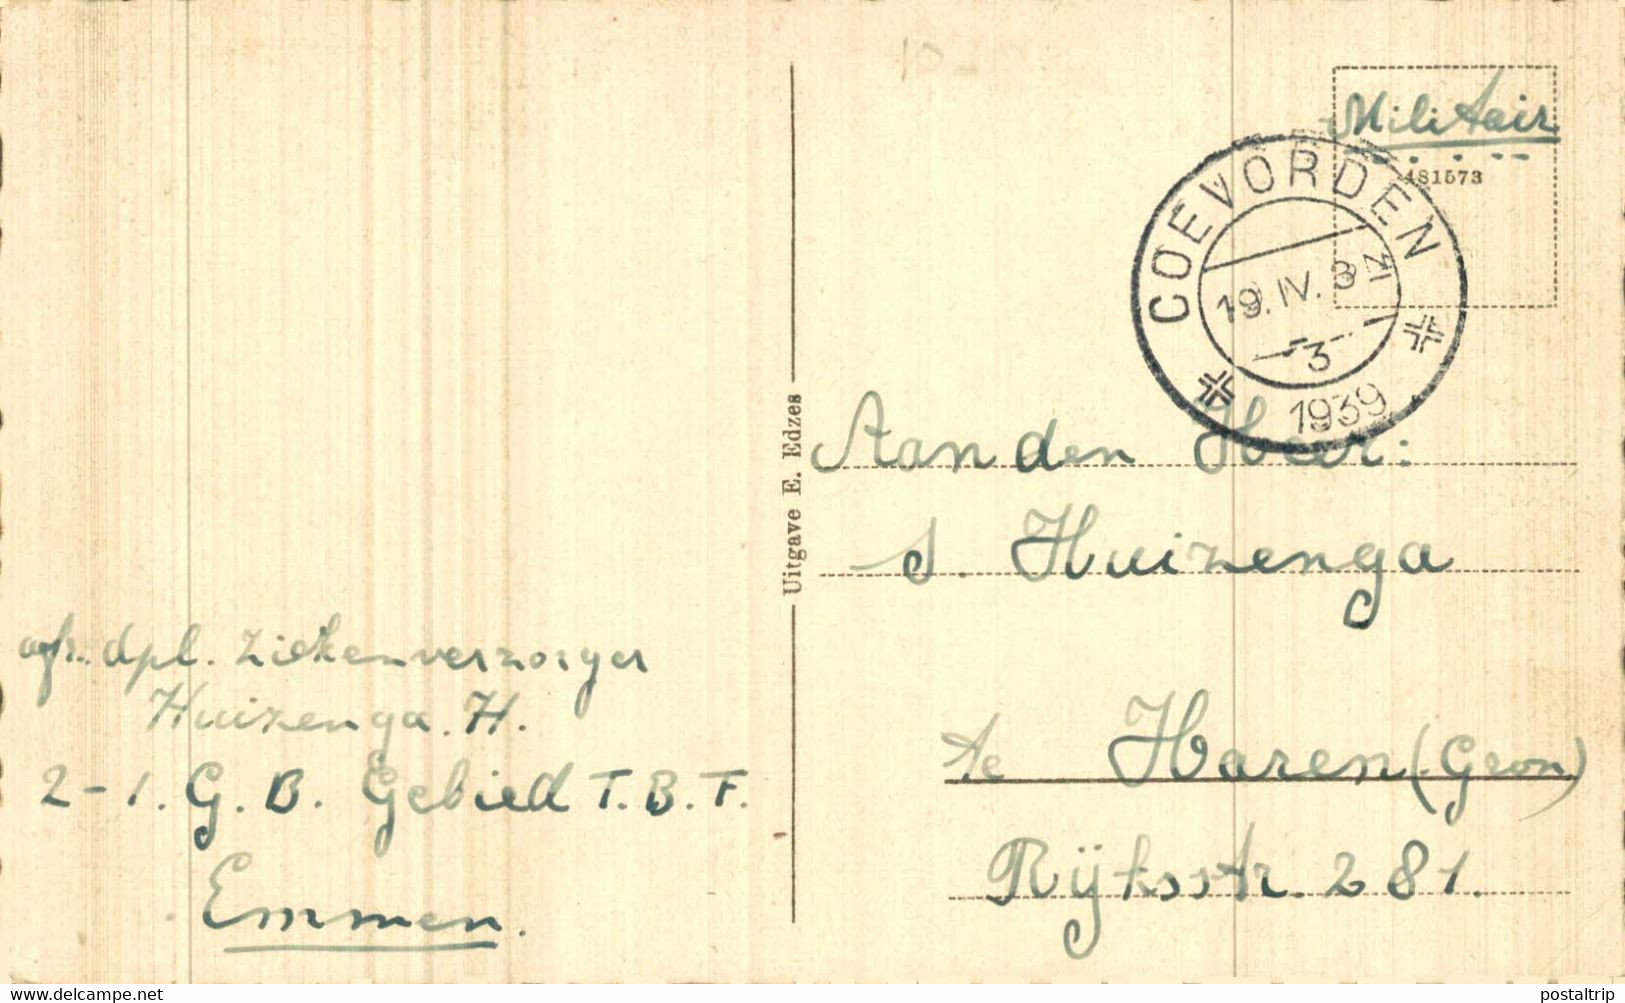 Militair
481573
COEVORDEN
19.IV.3
3
1939
Uitgave E. Edzes
Aan den Heer:
S. Huizenga
te Haren (Gron)
Rijksstr. 281.
afz. dpl. ziekenverzorger
Huizenga. H.
2-1. G.B. Gebied T.B.F.
Emmen.
www.delcampe.net
postaltrip